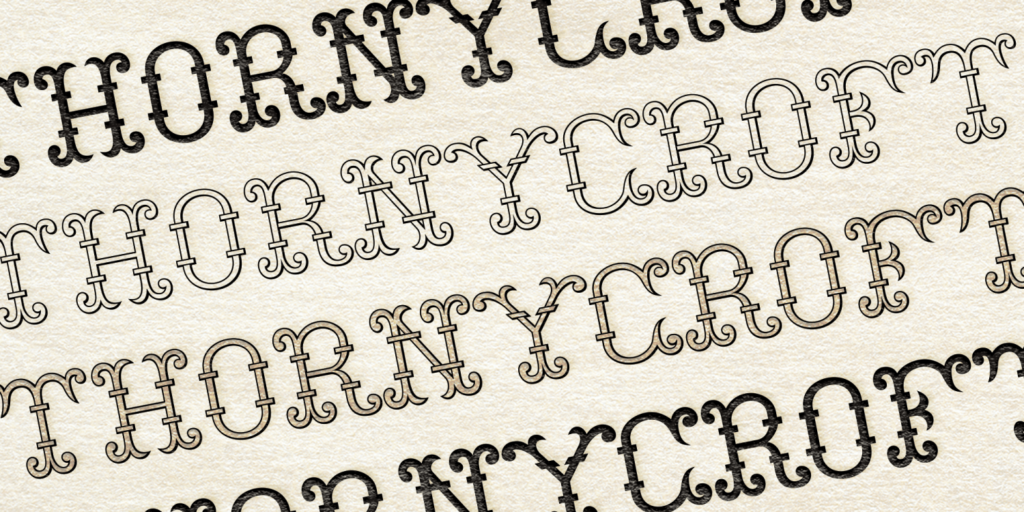 THORNYCROFT
THORNYCROFT
THORNYCROFT
THORNYCROFT